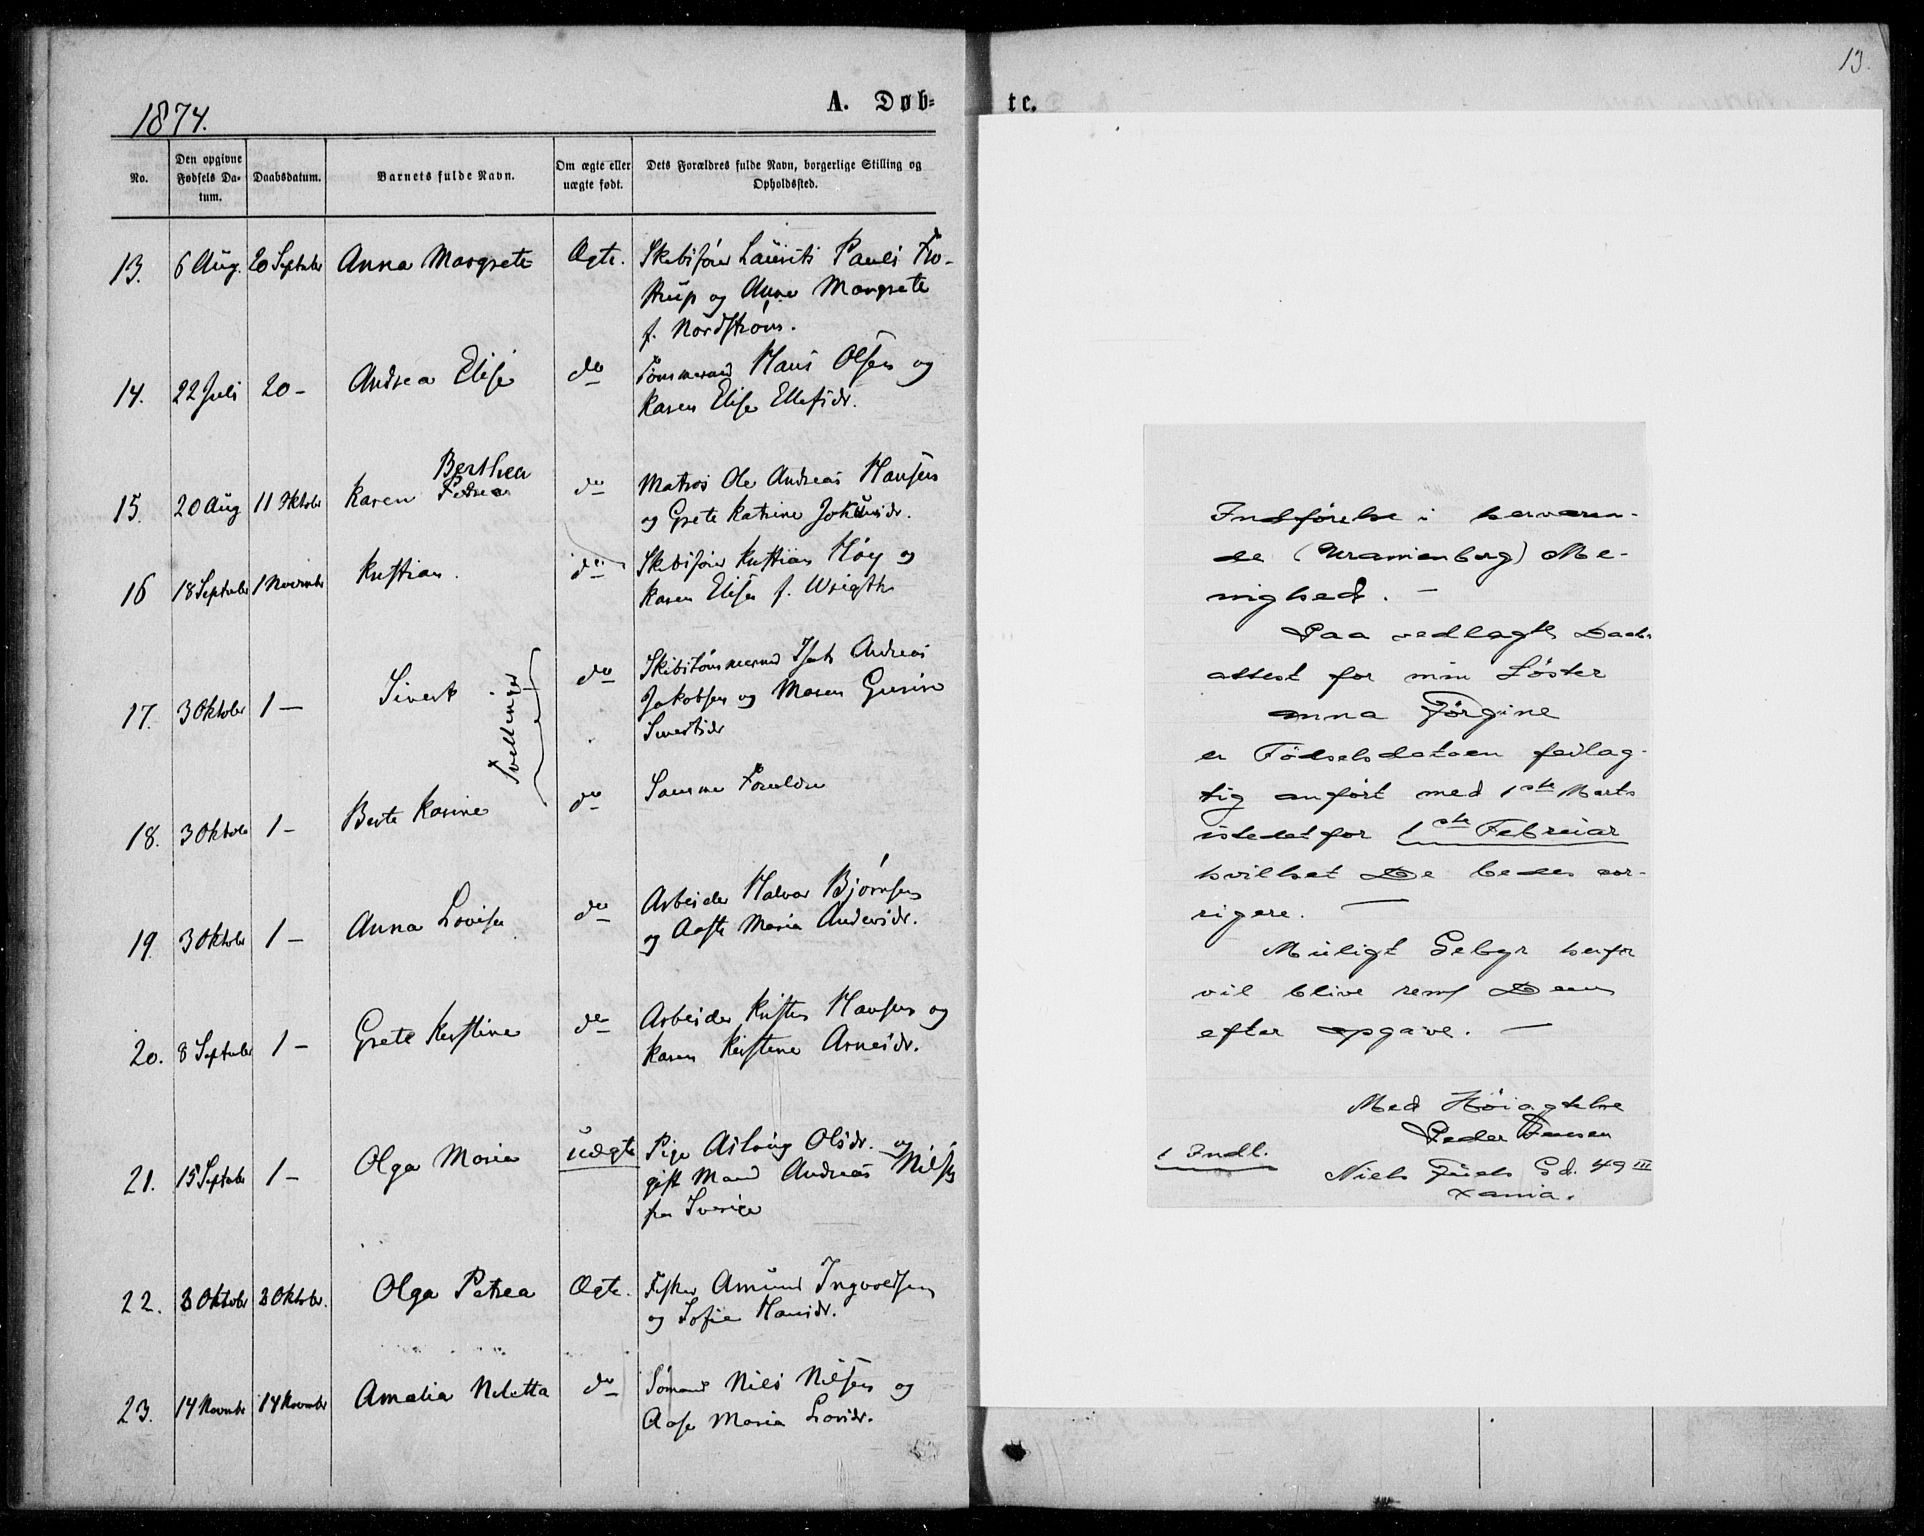 1874.
A. Døb=
te.
13.
No.
Den opgivne Fødsels Da=tum.
Daabsdatum.
Barnets fulde Navn.
Om ægte eller uægte født.
Dets Forældres fulde Navn, borgerlige Stilling og Opholdssted.
13. 6 Aug. 20 September Anna Margrete Ægte. Skibsfører Laurits Pauls Fro-
strup og Anne Margrete
f. Nordstrøm.
14. 22 Juli 20 – Andrea Elise do Tømmermand Hans Olsen og
Karen Elise Ellefsdr.
Berthea
15. 20 Aug 11 Oktober Karen Petrea do Matros Ole Andreas Hansen
og Grete Katrine
16 18 September 1 November Kristian. do Skibsfører Kristian Høy og
Karen Elise f. Wrigth
17. 3 Oktober 1 – Sivert do Skibstømmermand Isak Andreas
Jakobsen og Maren Gurine
Sivertsdr
Tvellinger
18. 3 Oktober 1 – Berte Karine do Samme Forældre
19. 3 Oktober 1 – Anna Lovise do Arbeider Halvor Bjørnsen
og Aaste Maria Andersdr.
20. 8 September 1 – Grete Kirstine do Arbeider Kristen Hansen og
Karen Kirstine Arnesdr.
21. 15 September 1 – Olga Maria Uægte Pige Aslaug Olsdr. og
gift Mand Andreas Nilsen
fra Sverige
22. 3 Oktober 3 Oktober. Olga Petrea Ægte. Fisker Amund Ingvoldsen
og Sofie Hansdr.
23. 14 November 14 November Amalia Neletta do Sømand Nils Nilsen og
Aase Maria
Indførelse i herværen-
de (Uranienborg) Me-
nighed. –
Paa vedlagte Daabs-
attest for min Søster
Anna Jørgine
er Fødselsdatoen feilag-
tig anført med 1ste Marts
istedetfor 1ste Februar
hvilket De bedes cor-
rigere. –
Muligt Gebyr herfor
vil blive rems Dem
efter opgave. –
Med Høiagtelse
Peder Jensen
1 Indl.
Niels Juels Gd. 49 III
Xania.